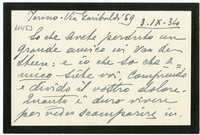 Torino - Via Garibaldi 59
3.IX.34
So che avete perduto un
grande amico in Van der
Steen: e io che so che a-
mico siete voi, Comprendo
e divido il vostro dolore.
Quanto è duro vivere
per veder scomparire in.